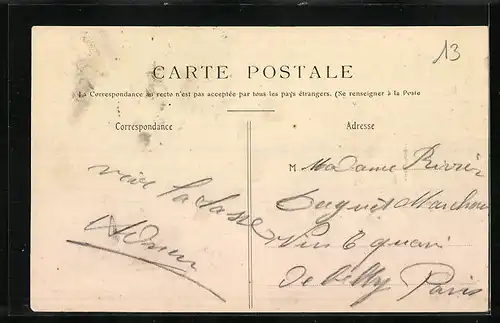 13
CARTE POSTALE
La Correspondance au recto n'est pas acceptée par tous les pays étrangers. (Se renseigner à la Poste
Correspondance
Adresse
vive la
M Madame Rivier
Marchand
Vins 6 quai
de Billy Paris